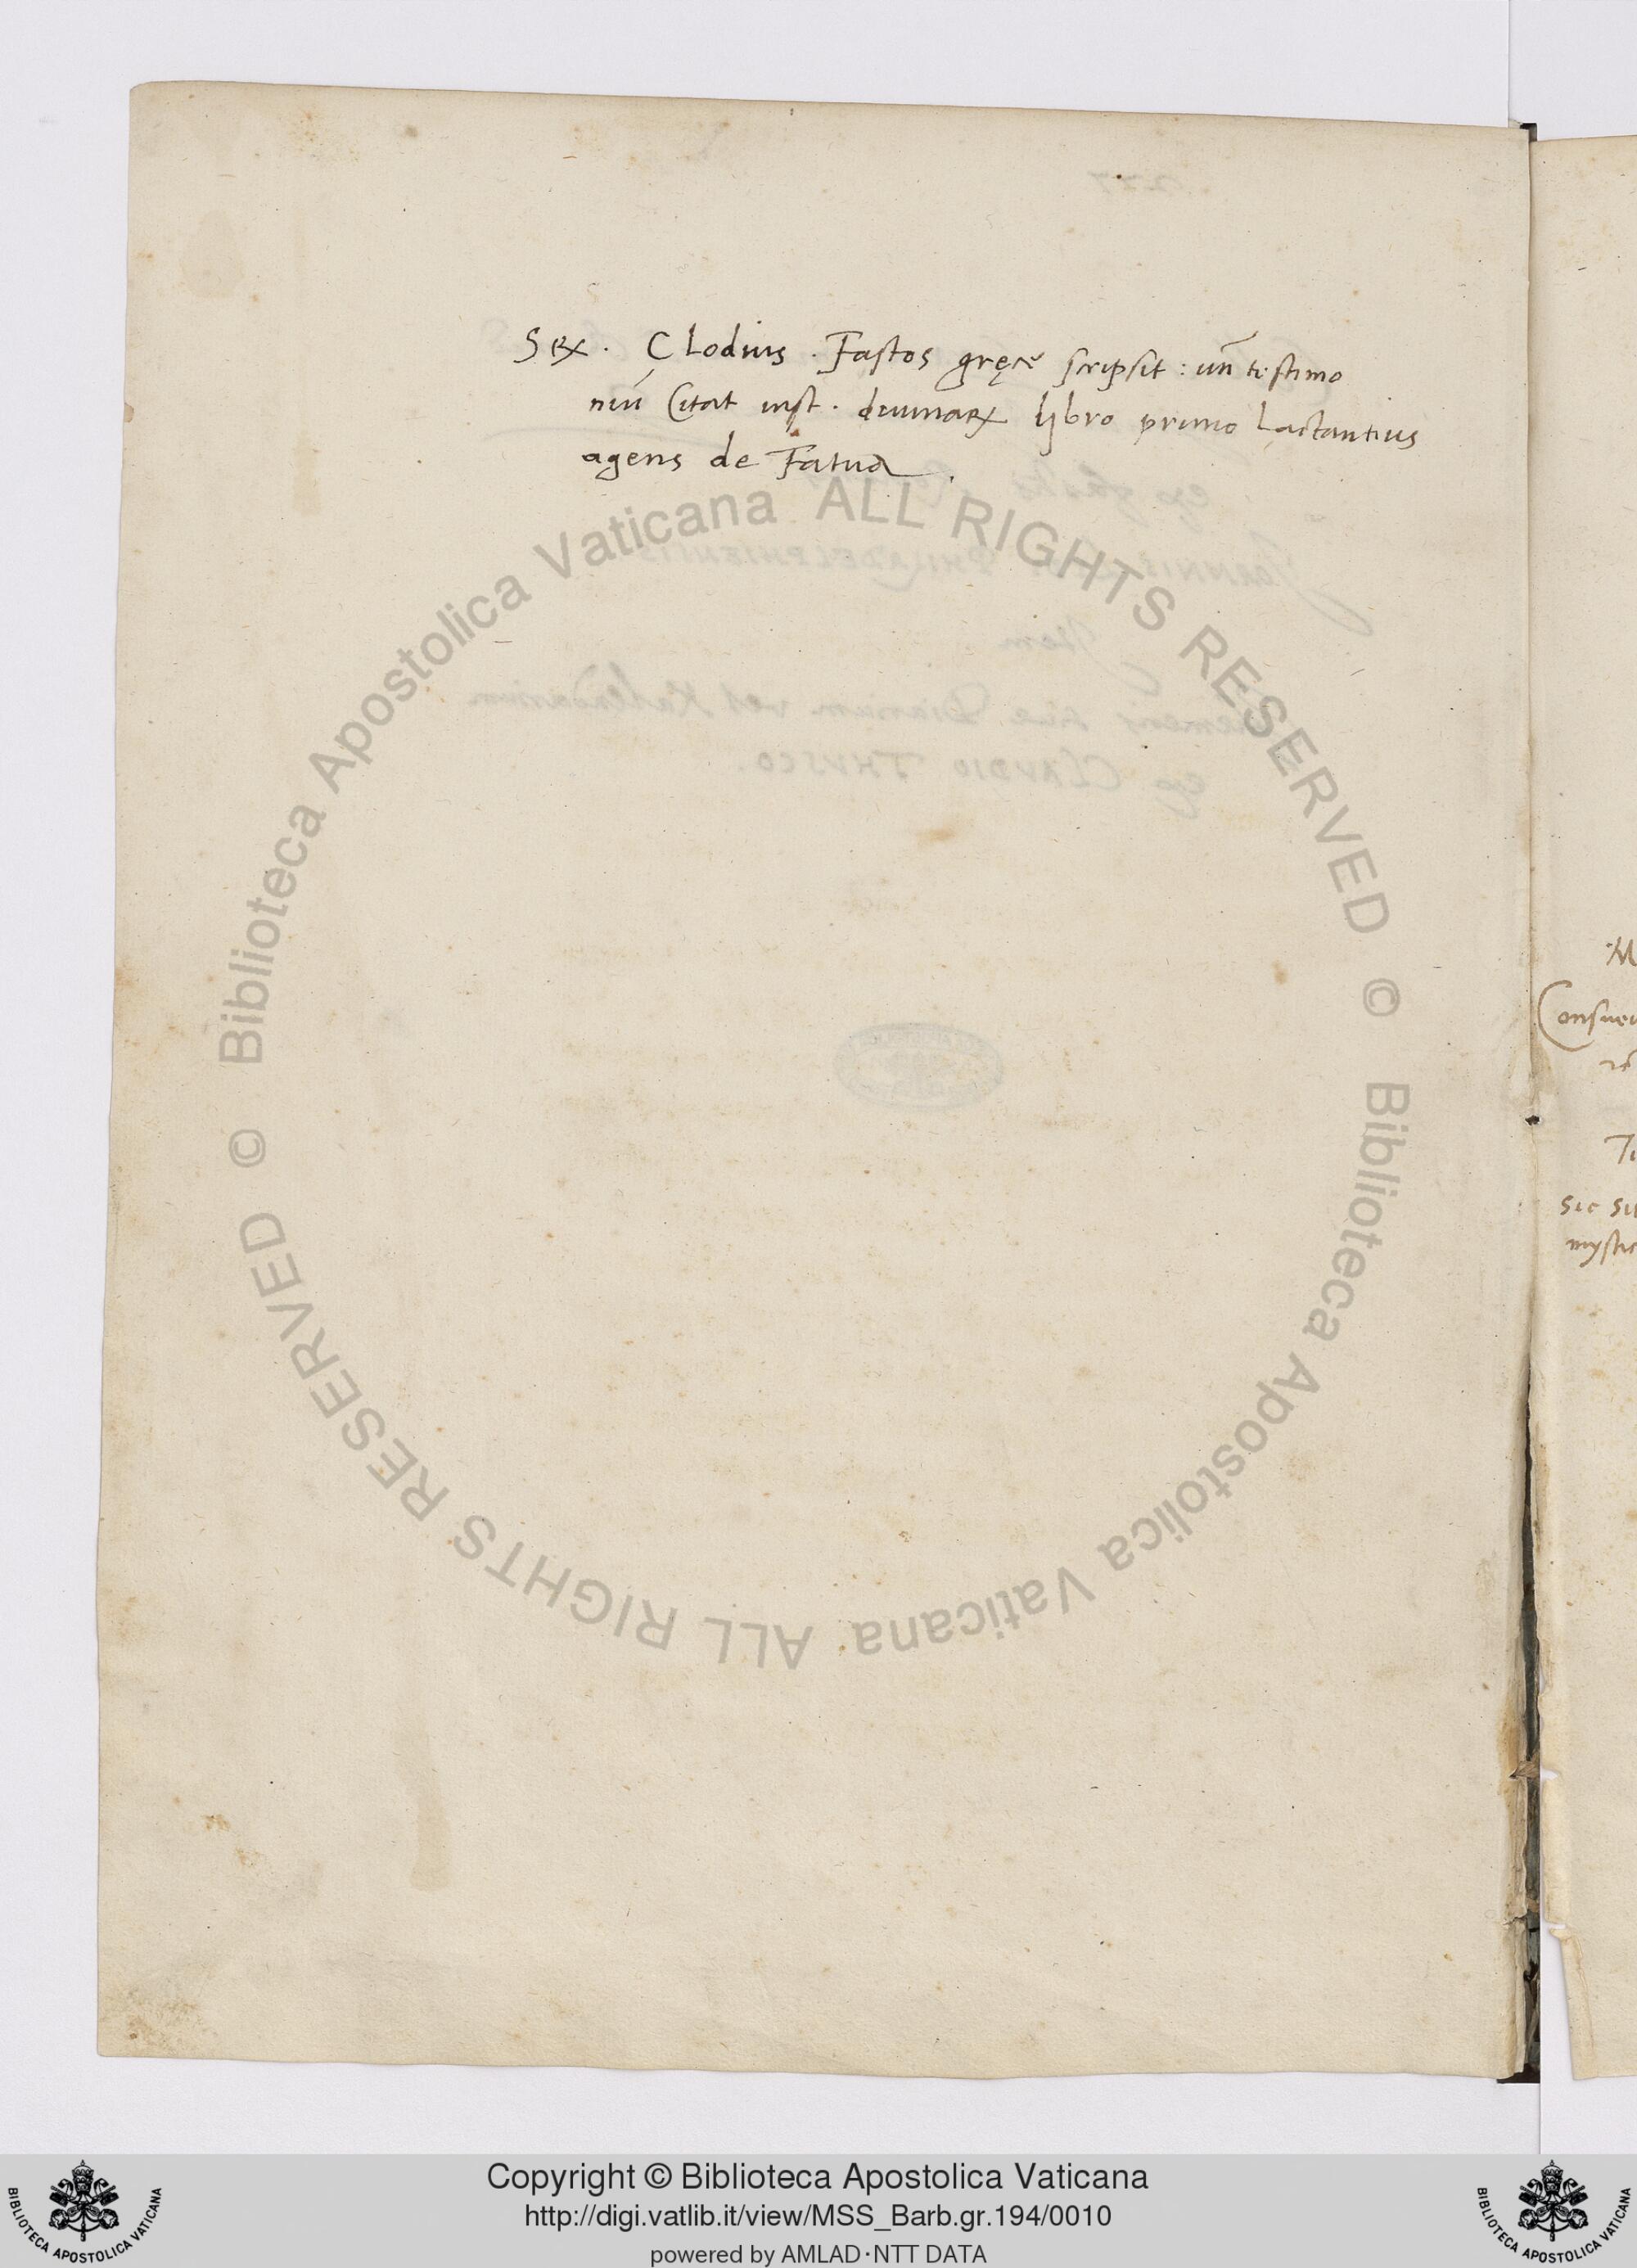 Sex. Clodius. Fastos gręcè scripsit: uñ testimo
niũ Citat inst. diuinaꝝ libro primo Lactantius
agens de Fatua.
Consue
Ti
sic sit
mystic
© Biblioteca Apostolica Vaticana ALL RIGHTS RESERVED © Biblioteca Apostolica Vaticana ALL RIGHTS RESERVED
Copyright © Biblioteca Apostolica Vaticana
http://digi.vatlib.it/view/MSS_Barb.gr.194/0010
powered by AMLAD·NTT DATA
BIBLIOTECA APOSTOLICA VATICANA
BIBLIOTECA APOSTOLICA VATICANA